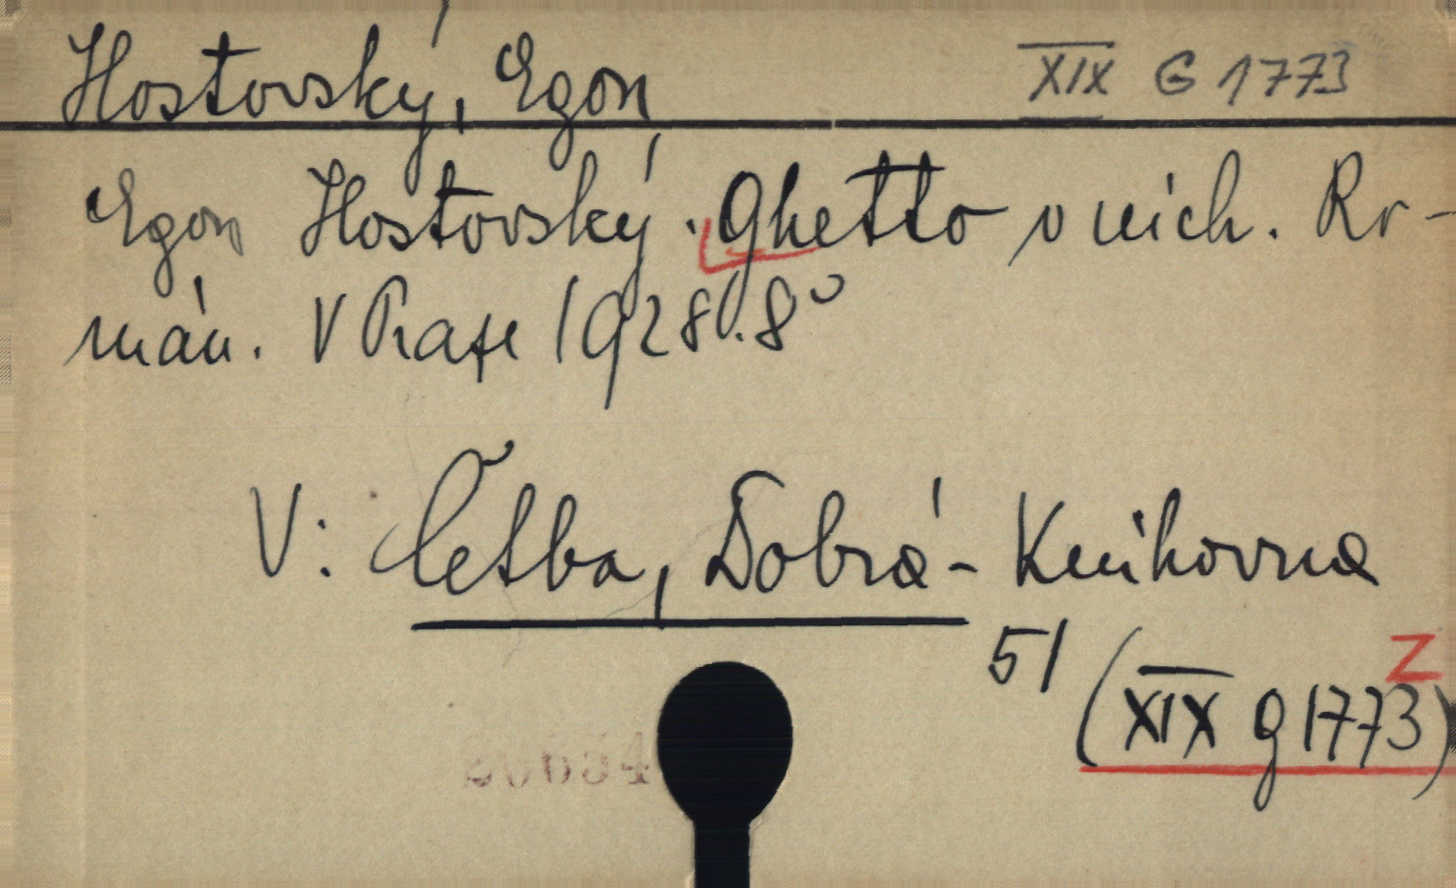 Hostovský, Egon XIX G 1773
Egon Hostovský. Ghetto v nich. Ro-
mán. V Praze 1928. 8°
V: Četba, Dobrá - Knihovna
51
Z
(XIX g 1773)